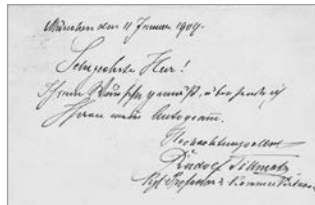 München den 11 Januar 1909.
Sehr geehrter Herr!
Ihrem Wunsche gemäß, übersende ich
Ihnen mein Autogramm.
Hochachtungsvollst
Rudolf
Kgl. Professor & Kammervirtuose